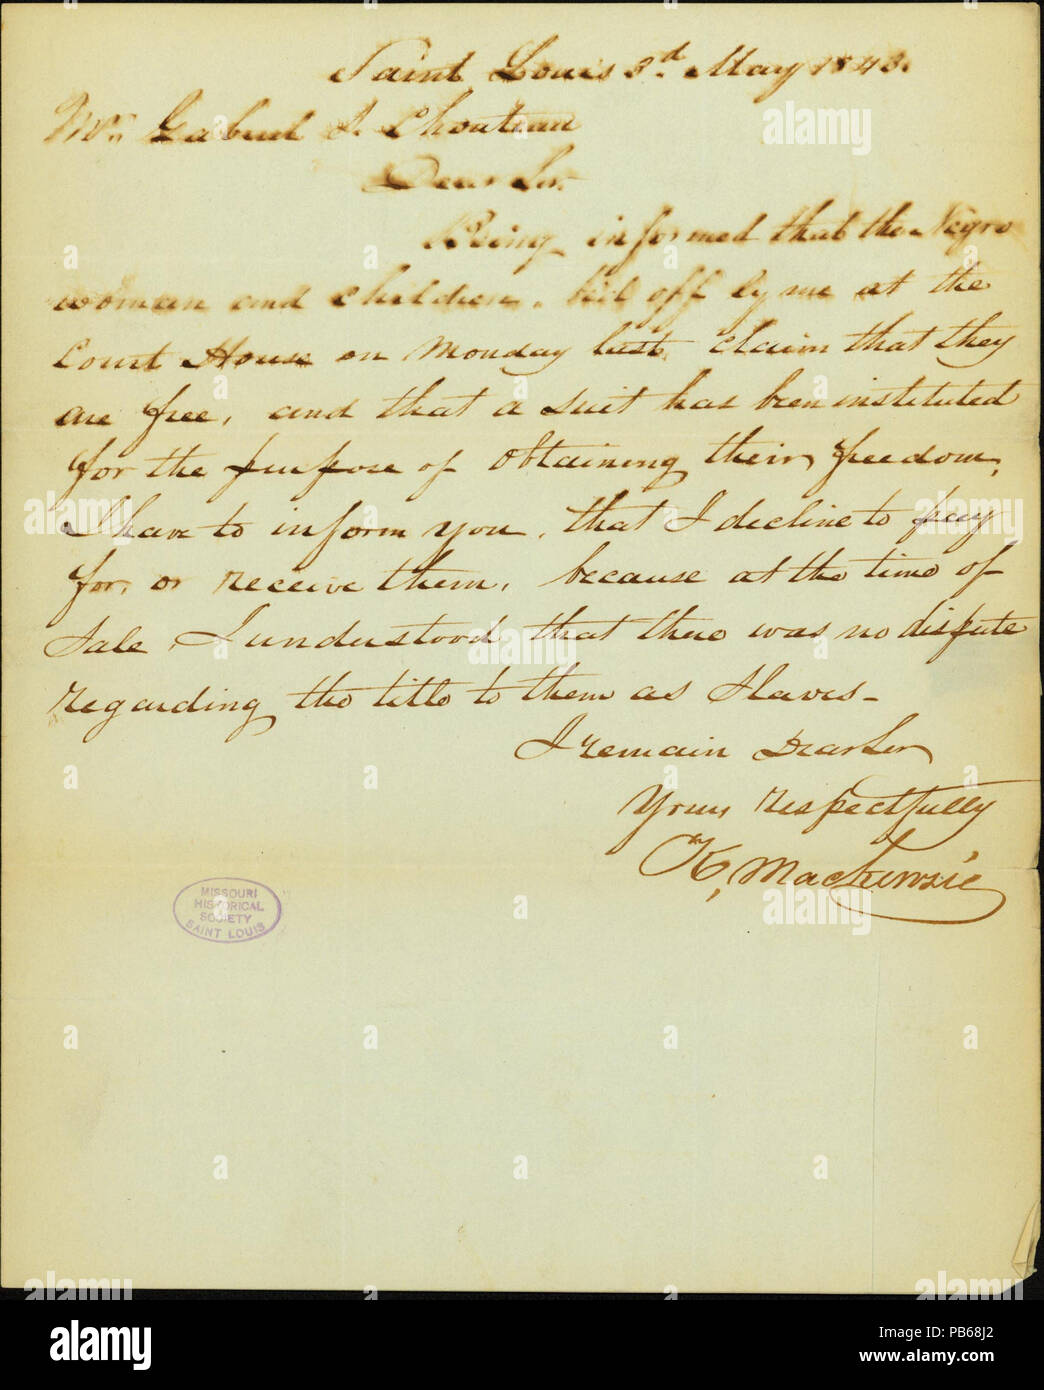 Saint Louis 3d May 1843.
Mr. Gabriel S. Chouteau
Dear Sir.
Being informed that the Negro
woman and children, bid off by me at the
Court House on Monday last, claim that they
are free, and that a suit has been instituted
for the purpose of obtaining their freedom,
I have to inform you, that I decline to pay
for, or receive them, because at the time of
Sale, I understood that there was no dispute
regarding the title to them as Slaves-
I remain Dear Sir
Your respectfully
K. Mackenzie
MISSOURI
HISTORICAL
SOCIETY
SAINT LOUIS
alamy
Image ID: PB68J2
www.alamy.com